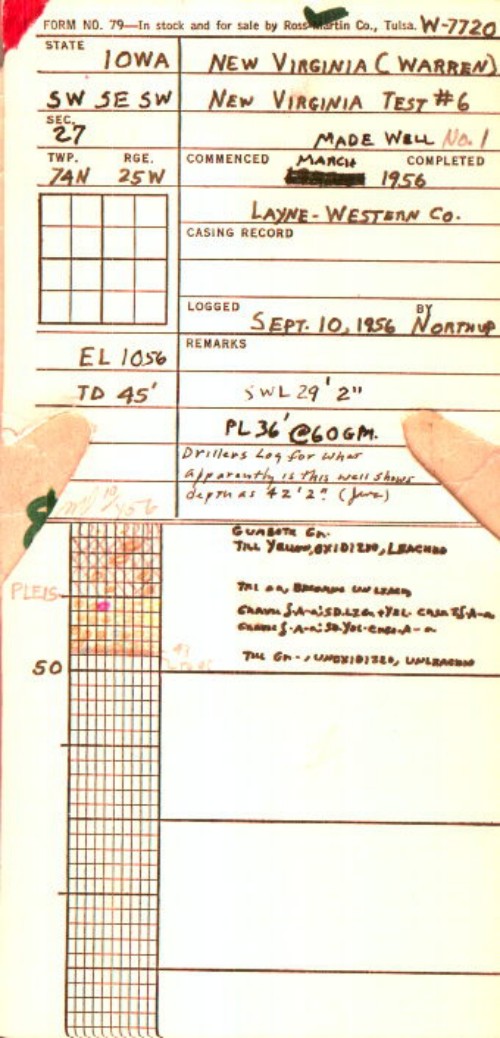 FORM NO. 79—In stock and for sale by Ross-Martin Co., Tulsa. W-7720
STATE
IOWA
NEW VIRGINIA (WARREN)
SW SE SW
NEW VIRGINIA TEST #6
SEC.
27
MADE WELL No. 1
TWP. RGE.
74N 25W
COMMENCED MARCH COMPLETED
1956
LAYNE-WESTERN CO.
CASING RECORD
LOGGED BY
SEPT. 10, 1956 NORTHUP
EL 1056
REMARKS
TD 45'
SWL 29' 2"
PL 36' @ 60 GM.
Drillers Log for what
apparently is this well shows
depth as 42' 2"
TILL YELLOW, OXIDIZED, LEACHED
PLEIS
50
TILL GN-, UNOXIDIZED, UNLEACHED